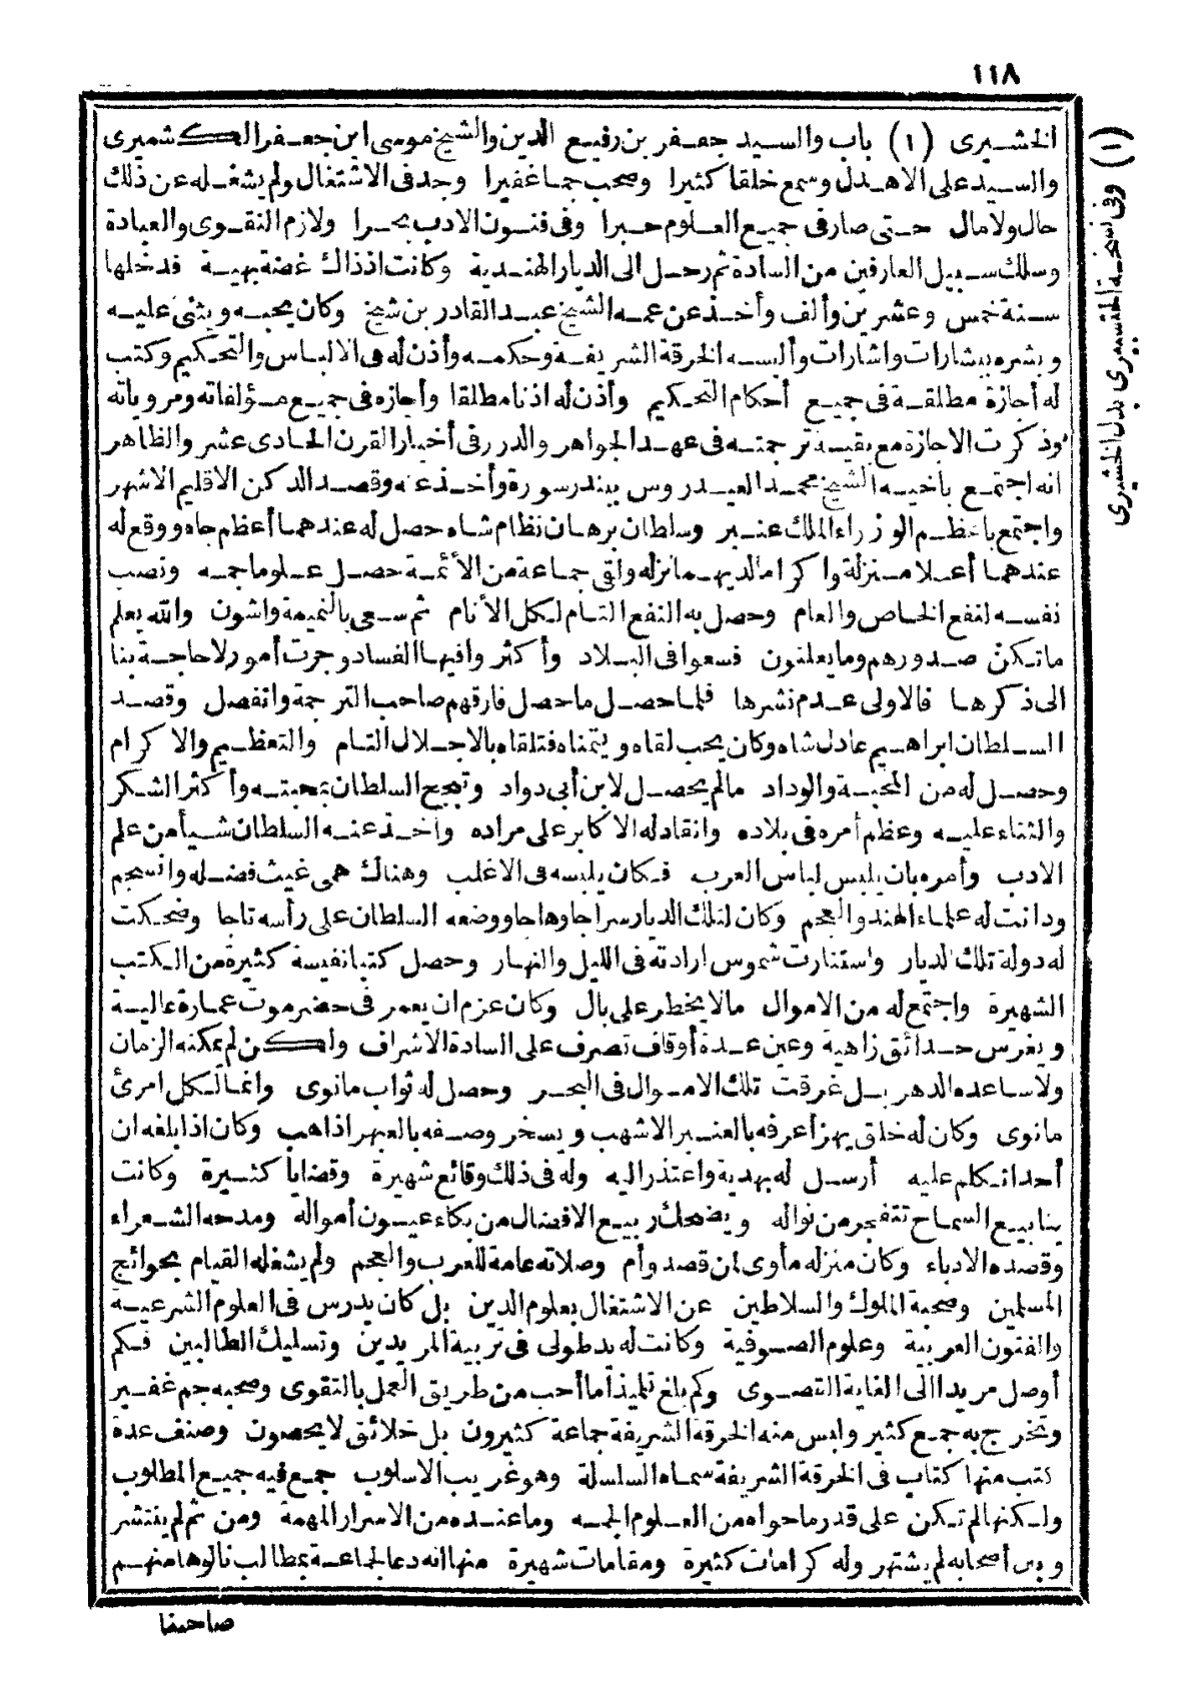 ١١٨
الخشـيرى (١) باب والسـيد جعـفر بن رفيع الدين والشيخ موسى ابن جعـفر الكشميرى
والسـيد على الاهـدل وسمع خلقا كثيرا وصحب جما غفيرا وجد فى الاشتغال ولم يشغـله عن ذلك
حال ولا مال حـتى صار فى جميع العـلوم حـبرا وفى فنـون الادب بحـرا ولازم التقـوى والعبادة
وسلك سـبيل العارفين من السادة ثم رحـل الى الديار الهنـدية وكانت اذ ذاك غضة بهيـة فدخلها
سـنة خمس وعشرين وألف وأخـذ عن عمـه الشيخ عبـد القادر بن شيخ وكان يحبـه ويثنى عليـه
وبشره ببشارات واشارات وألبسـه الخرقة الشريفـة وحكمـه وأذن له فى الالباس والتحـكيم وكتب
له اجازة مطلقـة فى جميـع أحكام التحـكيم وأذن له اذنا مطلقا وأجازه فى جميـع مـؤلفاته ومروياته
وذكرت الاجازة مع بقيـة ترجمتـه فى عهـد الجواهر والدرر فى أخبار القرن الحادى عشر والظاهر
انه اجتمـع بأخيـه الشيخ محمـد العيـدروس ببندر سورة وأخـذ عنه وقصـد الدكن الاقليم الاشهر
واجتمع بأعظـم الوزراء الملك عنبـر وسلطان برهـان نظام شاه حصل له عندهمـا أعظم جاه ووقع له
عندهمـا أعـلا مـنزلة واكراما لديهـما نزله ولقى جمـاعة من الأئمـة حصـل عـلوما جمـه ونصب
نفسـه لنفع الخـاص والعام وحصـل به النفع التـام لـكل الأنام ثم سـعى بالنميمة واشون والله يعلم
ما تـكنّ صـدورهم وما يعلنون فسعوا فى البـلاد وأكثروا فيهـا الفساد وجرت أمور لا حاجـة بنا
الى ذكرهـا فالاولى عـدم نشرها فلما حصـل ما حصل فارقهم صاحب الترجمة وانفصل وقصـد
السـلطان ابراهـيم عادل شاه وكان يحب لقاه ويتمناه فتلقاه بالاجـلال التـام والتعظـيم والاكرام
وحصـل له من المحبـة والوداد ما لم يحصـل لابن أبى دواد وتبجح السلطان بمحبتـه وأكثر الشـكر
والثناء عليـه وعظم أمره فى بلاده وانقاد له الاكابر على مراده وأخـذ عنـه السلطان شـيأ من علم
الادب وأمره بان يلبس لباس العرب فـكان يلبسه فى الاغلب وهناك همى غيث فضـله وانسجم
ودانت له علمـاء الهند والعجم وكان لتلك الديار سراجا وهاجا ووضعه السلطان على رأسه تاجا وضحـكت
له دولة تلك الديار واستنارت شموس ارادته فى الليل والنهـار وحصل كتبا نفيسة كثيرة من الـكتب
الشهيرة واجتمع له من الاموال مالا يخطر على بال وكان عزم ان يعمر فى حضرموت عمـارة عاليـة
ويغرس حـدائق زاهية وعين عـدة أوقاف تصرف على السادة الاشراف ولكـن لم يمكنه الزمان
ولا ساعده الدهر بـل غرقت تلك الامـوال فى البحـر وحصل له ثواب ما نوى وانما لـكل امرئ
ما نوى وكان له خلق يهزأ عرفه بالعنبـر الاشهب ويسخر وصـفه بالعبهر اذا هب وكان اذا بلغه ان
أحدا تـكلم عليه أرسـل له بهدية واعتذر اليه وله فى ذلك وقائع شهيرة وقضايا كثـيرة وكانت
ينابيع السماح تتفجر من نواله ويضحك ربيـع الافضال من بكاء عيـون أمواله ومدحه الشـعراء
وقصده الادباء وكان منزله مأوى لمن قصد وأم وصلاته عامة للعرب والعجم ولم يشغله القيام بحوائج
المسلمين وصحبة الملوك والسلاطين عن الاشتغال بعلوم الدين بل كان يدرس فى العلوم الشرعيـة
والفنون العربية وعلوم الصـوفية وكانت له يد طولى فى تربية المريدين وتسليك الطالبين فـكم
أوصل مريدا الى الغاية القصـوى وكم بلغ تلميذا ما أحب من طريق العمل بالتقوى وصحبه جم غفيـر
وتخرج به جمـع كثير ولبس منه الخرقة الشريفة جماعة كثيرون بل خلائق لا يحصون وصنف عدة
كتب منها كتاب فى الخرقة الشريفة سماه السلسلة وهو غريب الاسلوب جمـع فيه جميع المطلوب
ولـكنها لم تـكن على قدر ما حواه من العـلوم الجمـه وما عنـده من الاسرار المهمة ومن ثم لم ينتشر
وبين أصحابه لم يشتهر وله كرامات كثيرة ومقامات شهيرة منها انه دعا لجماعـة بمطالب نالوها منهـم
صاحبنا
(١) وفى نسخـة القشميرى بدل الخشيرى